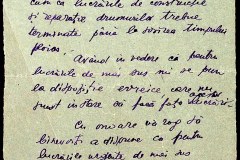 cum ca lucrările de construcție
și reparație drumurilor trebue
terminate până la sosirea timpului
ploios.
Având în vedere că pentru
lucrările de mai sus mi se pun
la dispoziție evreice care nu
sunt în stare să facă față lucrării
Cu onoare vă rog să
binevoiți a dispune ca pentru
lucrările urgente de mai sus